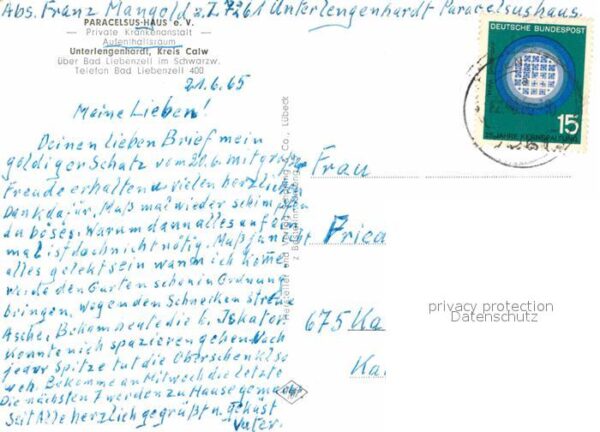 Abs. Franz Mangold z. Z. 7261 Unterlengenhardt Paracelsushaus.
PARACELSUS-HAUS e. V.
— Private Krankenanstalt —
— Aufenthaltsraum —
Unterlengenhardt, Kreis Calw
über Bad Liebenzell im Schwarzw.
Telefon Bad Liebenzell 400
21.6.65
Meine Lieben!
Deinen lieben Brief mein
goldiger Schatz vom 20.6. mit großer
Freude erhalten u. vielen herzlichen
Dank dafür. Muß mal wieder schimpfen
du böses. Warum dann alles auf ein
mal ist doch nicht nötig. Muß ja nicht
alles geleckt sein wann ich kome
werde den Garten schon in Ordnung
bringen. Wegen den Schnecken streue
Asche. Bekomme heute die
konnte nich spazieren gehen. Nach
jeder Spitze tut die Oberschenkl so
weh. Bekomme am Mitwoch die letzte
Die nächsten 7 werden zu Hause gemacht
Seit Alle herzlich gegrüßt u. geküst
Vater.
DEUTSCHE BUNDESPOST
15
JAHRE KERNSPALTUNG
Frau
Frieda
675 Ka
Ka
Co., Lübeck
privacy protection
Datenschutz